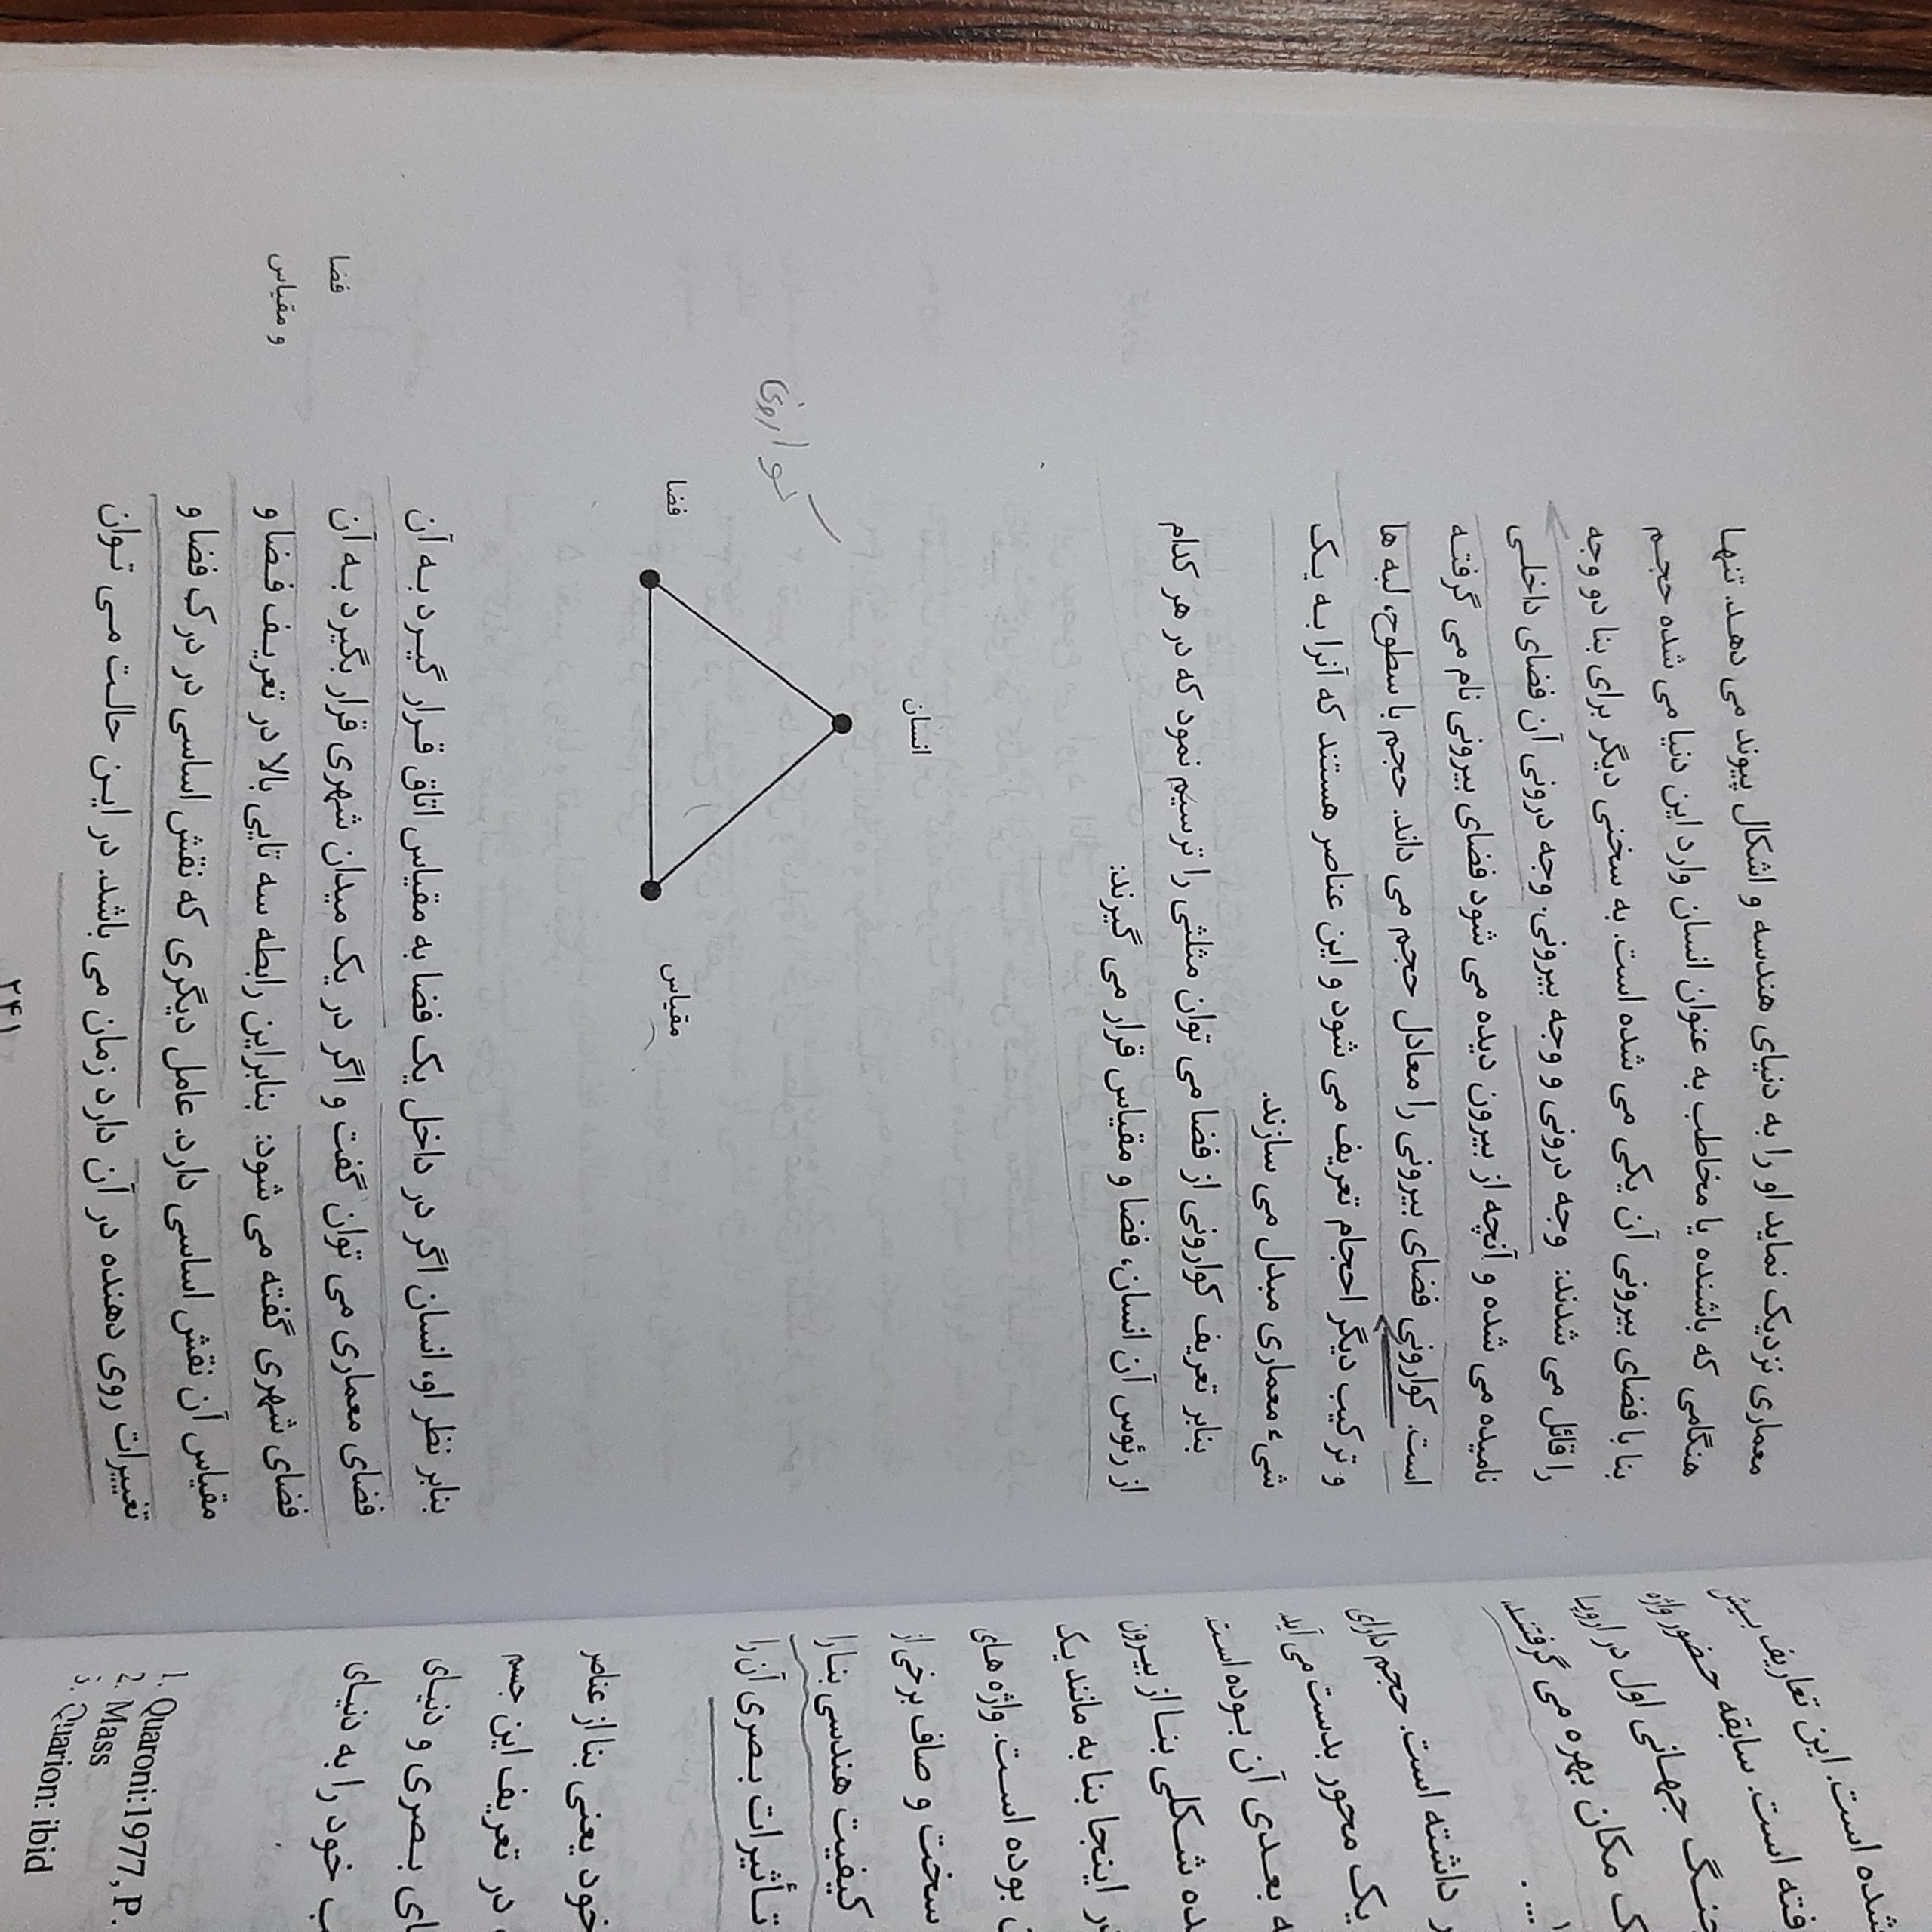 معماری نزدیک نماید او را به دنیای هندسه و اشکال پیوند می دهد. تنها
هنگامی که باشنده یا مخاطب به عنوان انسان وارد این دنیا می شده حجم
بنا با فضای بیرونی آن یکی می شده است. به سخنی دیگر برای بنا دو وجه
را قائل می شدند: وجه درونی و وجه بیرونی. وجه درونی آن فضای داخلی
نامیده می شده و آنچه از بیرون دیده می شود فضای بیرونی نام می گرفته
است. کوارونی فضای بیرونی را معادل حجم می داند. حجم با سطوح، لبه ها
و ترکیب دیگر احجام تعریف می شود و این عناصر هستند که آنرا به یک
شیء معماری مبدل می سازند.
بنابر تعریف کوارونی از فضا می توان مثلثی را ترسیم نمود که در هر کدام
از رئوس آن انسان، فضا و مقیاس قرار می گیرند:
انسان
کوارونی
فضا
مقیاس
بنابر نظر او، انسان اگر در داخل یک فضا به مقیاس اتاق قرار گیرد به آن
فضای معماری می توان گفت و اگر در یک میدان شهری قرار بگیرد به آن
فضای شهری گفته می شود: بنابراین رابطه سه تایی بالا در تعریف فضا و
مقیاس آن نقش اساسی دارد. عامل دیگری که نقش اساسی در درک فضا و
تغییرات روی دهنده در آن دارد زمان می باشد. در این حالت می توان
فضا
و مقیاس
۲۴۱
شده است. این تعاریف بیشتر
است. سابقه حضور واژه
جنگ جهانی اول در اروپا
مکان بهره می گرفتند.
داشته است. حجم دارای
یک محور بدست می آید
بعدی آن بوده است
شکلی بنا از بیرون
اینجا بنا به مانند یک
بوده است. واژه های
سخت و صاف برخی از
کیفیت هندسی بنا را
تأثیرات بصری آن را
خود یعنی بنا از عناصر
در تعریف این جسم
بصری و دنیای
خود را به دنیای
1. Quaroni:1977, P.
2. Mass
3. Quarion: ibid